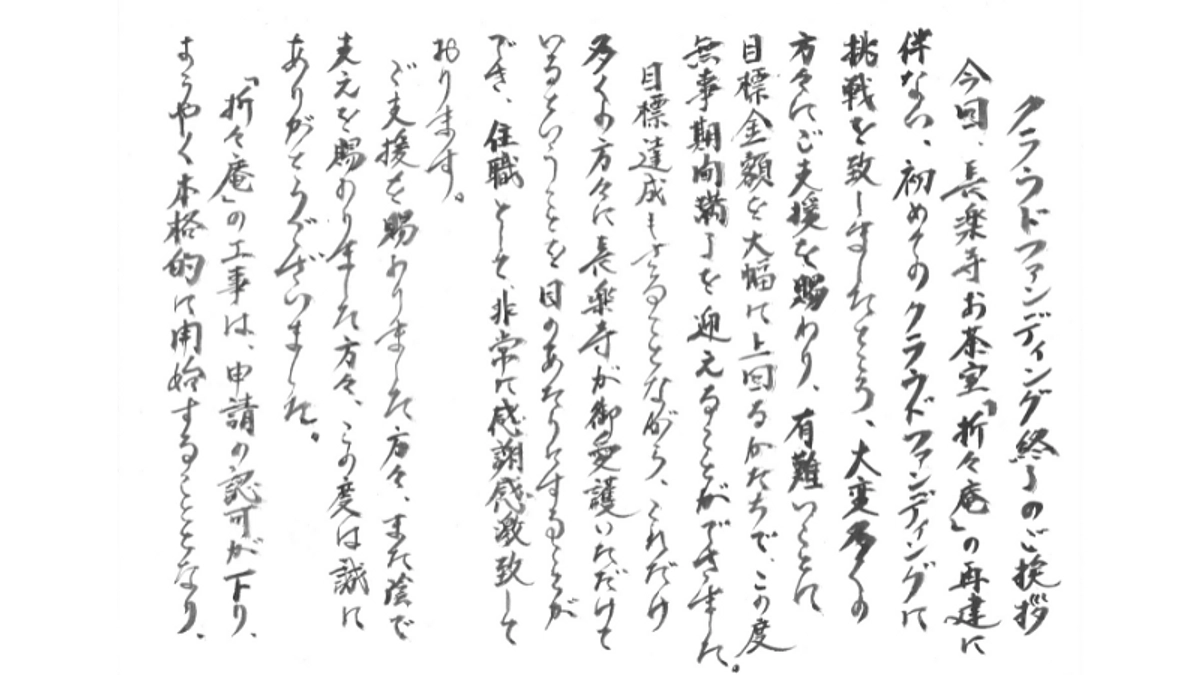 クラウドファンディング終了のご挨拶
今回、長楽寺お茶室「折々庵」の再建に
伴ない、初めてのクラウドファンディングに
挑戦を致しましたところ、大変多くの
方々にご支援を賜わり、有難いことに
目標金額を大幅に上回るかたちで、この度
無事期間満了を迎えることができました。
目標達成もさることながら、これだけ
多くの方々に長楽寺が御愛護いただけて
いるということを目のあたりにすることが
でき、住職として、非常に感謝感激致して
おります。
ご支援を賜わりました方々、また陰で
支えを賜わりました方々、この度は誠に
ありがとうございました。
「折々庵」の工事は、申請の認可が下り、
ようやく本格的に開始することとなり、